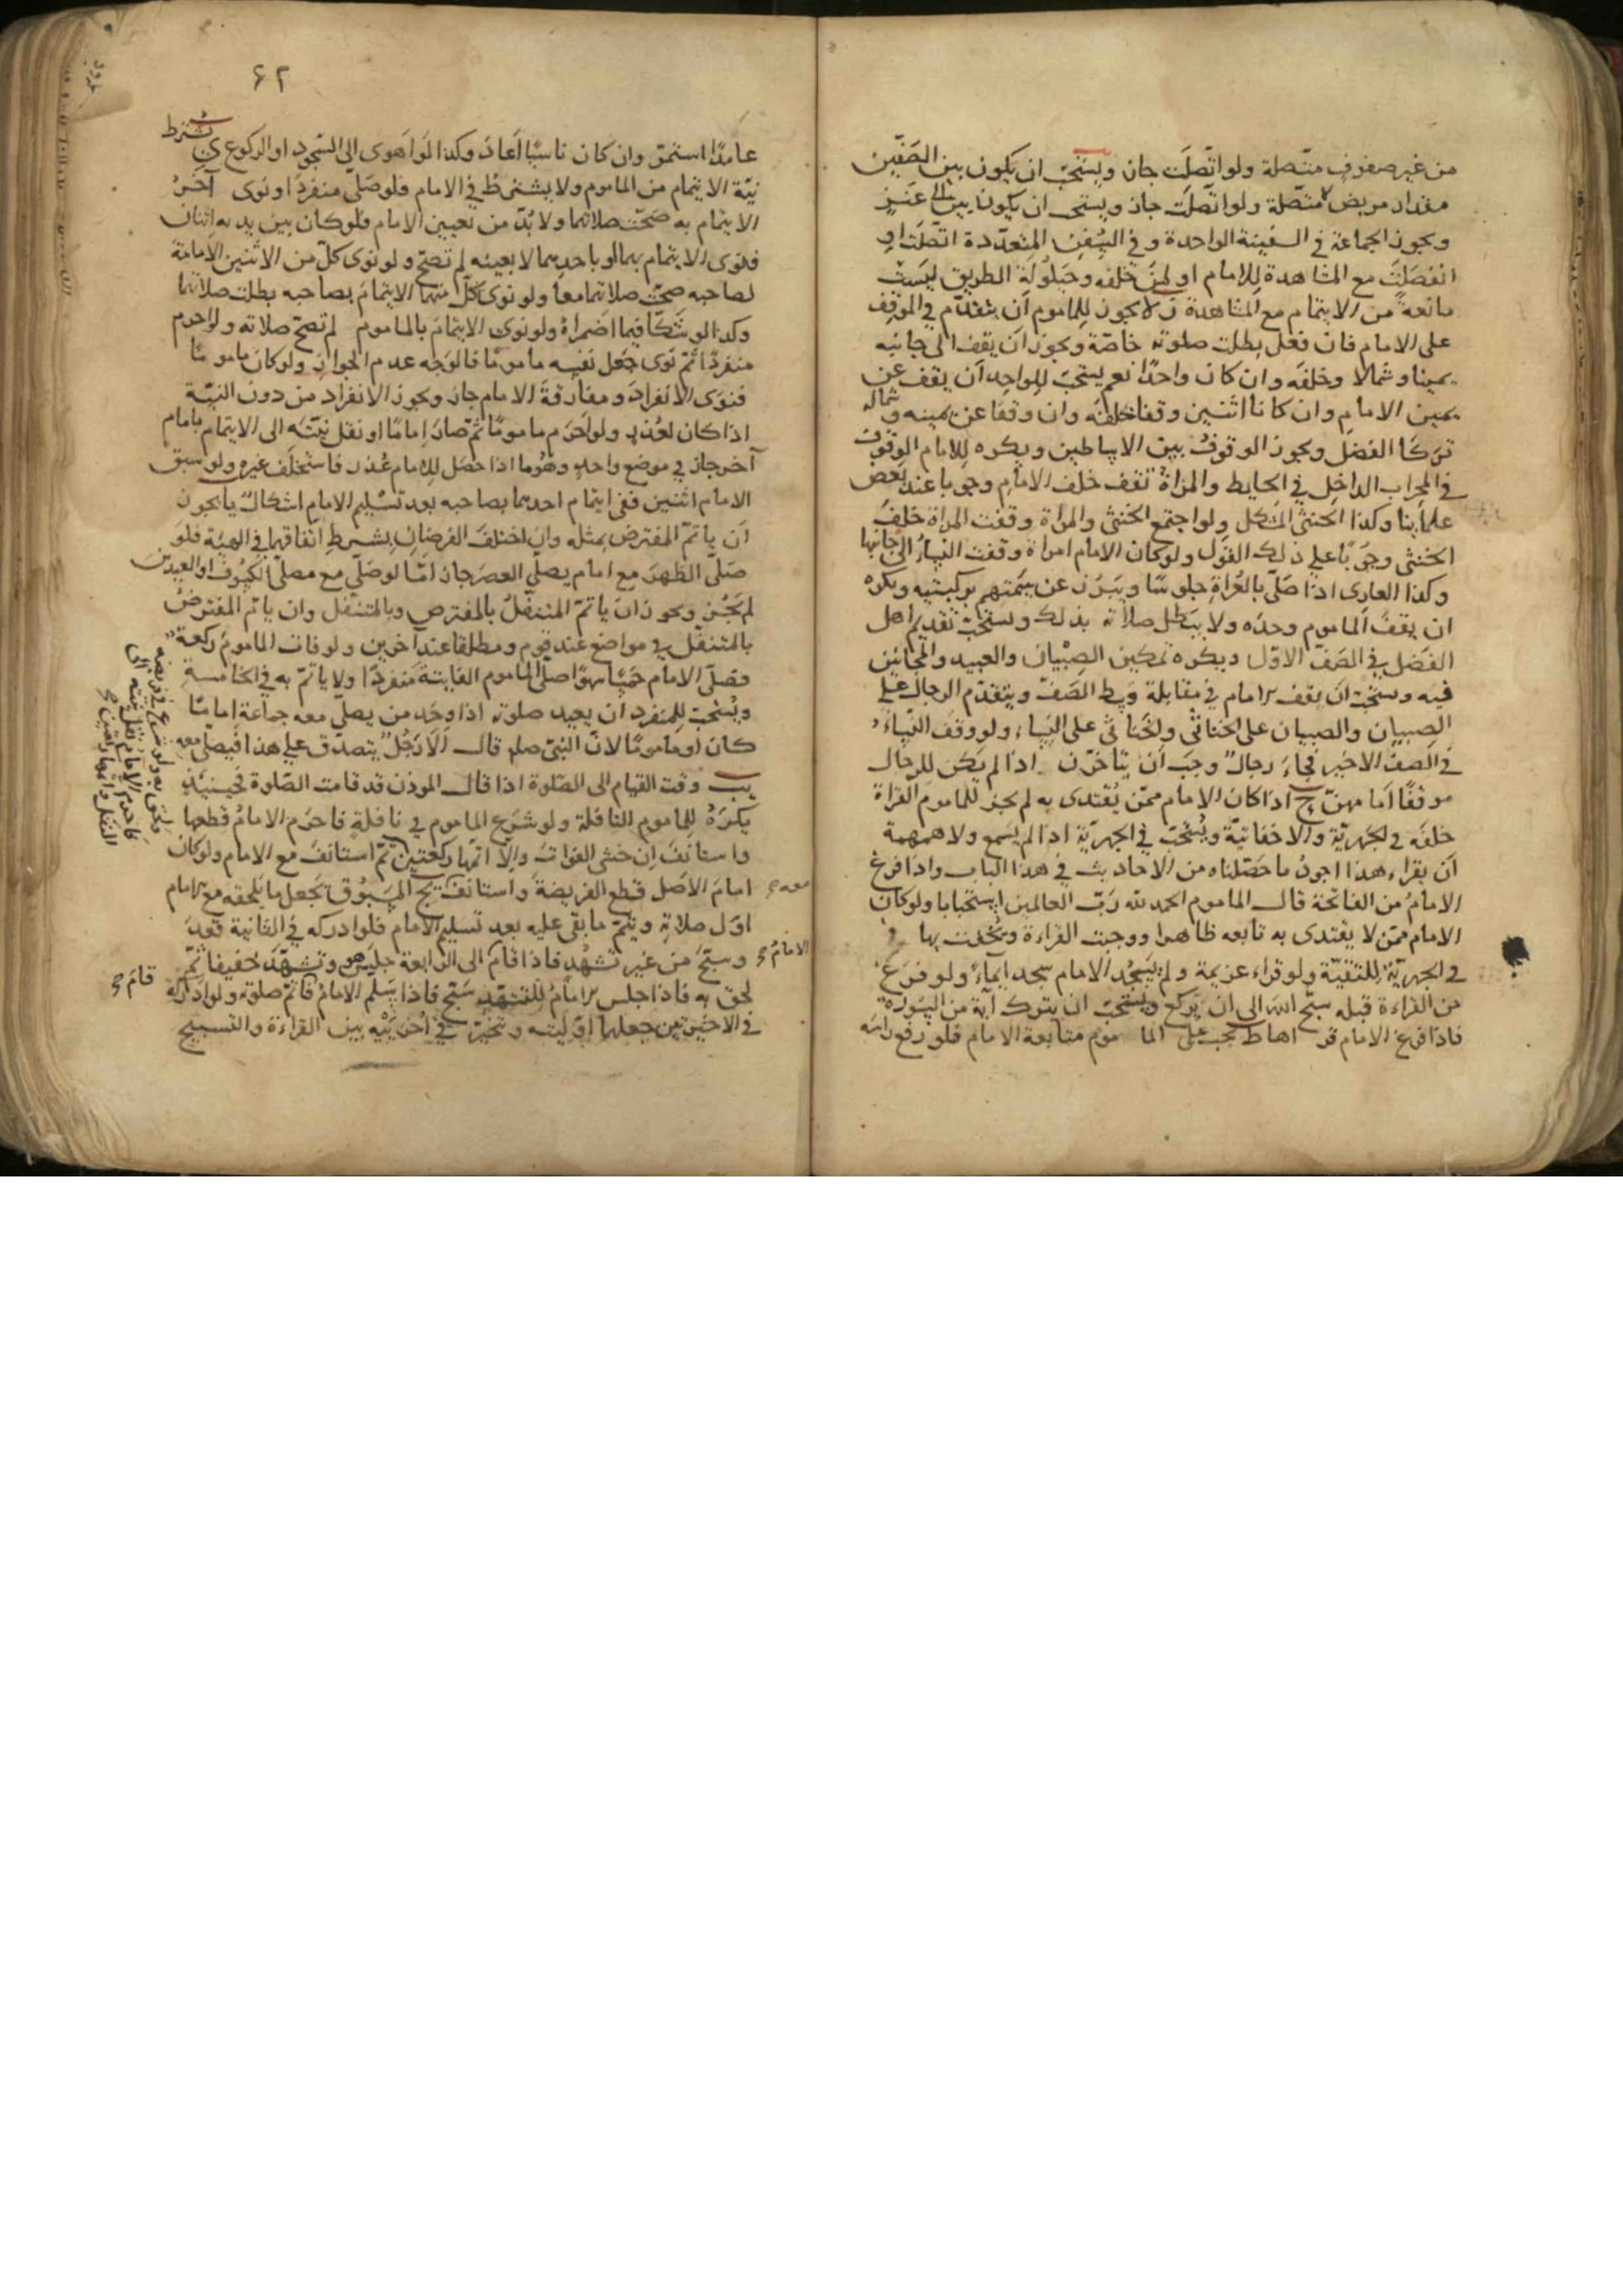 من غير صفوف متصلة ولو اتصلت جاز ويستحب ان يكون بين الصفين
مقدار مربض متصلة ولو اتصلت جاز ويستحب ان يكون بين عنز
ويجوز الجماعة في السفينة الواحدة وفي السفن المتعددة اتصلت او
انفصلت مع المشاهدة للامام او لمن خلفه وحيلولة الطريق ليست
مانعة من الايتمام مع المشاهدة لا يجوز للماموم ان يتقدم في الموقف
على الامام فان فعل بطلت صلوته خاصة ويجوز ان يقف الى جانبه
يمينا وشمالا وخلفه وان كان واحدا نعم يستحب للواحد ان يقف عن
يمين الامام وان كانا اثنين وقفا خلفه وان وقفا عن يمينه وشماله
تركا الفضل ويجوز الوقوف بين الاساطين ويكره للامام الوقوف
في المحراب الداخل في الحايط والمراة تقف خلف الامام وجوبا عند بعض
علمأينا وكذا الخنثى المشكل ولو اجتمع الخنثى والمراة وقفت المراة خلف
الخنثى وجوبا على ذلك القول ولو كان الامام امراة وقفت النساء الى جانبها
وكذا العارى اذا صلى بالعراة جلوسا ويبرز عن سمتهم بركبتيه ويكره
ان يقف الماموم وحده ولا يبطل صلاته بذلك ويستحب تقديم اهل
الفضل في الصف الاول ويكره تمكين الصبيان والعبيد والمجانين
فيه ويستحب ان يقف الامام في مقابلة وسط الصف ويتقدم الرجال على
الصبيان والصبيان على الخناثى والخناثى على النساء ولو وقف النساء
في الصف الاخير فجاء رجال وجب ان يتاخرن اذا لم يكن للرجال
موقفا امامهن ح اذا كان الامام ممن يقتدى به لم يجز للماموم القراة
خلفه في الجهرية والاخفاتية ويستحب في الجهرية اذا لم يسمع ولا همهمة
ان يقراء هذا اجود ما حصلناه من الاحاديث في هذا الباب واذا فرغ
الامام من الفاتحة قال الماموم الحمد لله رب العالمين استحبابا ولو كان
الامام ممن لا يقتدى به تابعه ظاهرا ووجبت القراءة ويخفت بها
في الجهرية للتقية ولو قراء عزيمة ولم يسجد الامام سجد ايماء ولو فرغ
من القراءة قبله سبح الله الى ان يركع ويستحب ان يترك آية من السورة
فاذا فرغ الامام قراها ط يجب على الماموم متابعة الامام فلو رفع راسه
۶۲
عامدا استمر وان كان ناسيا اعاد وكذا لو اهوى الى السجود او الركوع ى يشترط
نية الايتمام من الماموم ولا يشترط في الامام فلو صلى منفردا ونوى آخر
الايتمام به صحت صلاتهما ولا بد من تعيين الامام فلو كان بين يديه اثنان
فنوى الايتمام بهما او باحدهما لا بعينه لم تصح ولو نوى كل من الاثنين الامامة
لصاحبه صحت صلاتهما معا ولو نوى كل منهما الايتمام بصاحبه بطلت صلاتهما
وكذا لو شكا فيما اضمراه ولو نوى الايتمام بالماموم لم تصح صلاته ولو احرم
منفردا ثم نوى جعل نفسه ماموما فالوجه عدم الجواز ولو كان ماموما
فنوى الانفراد ومفارقة الامام جاز ويجوز الانفراد من دون النية
اذا كان لعذر ولو احرم ماموما ثم صار اماما او نقل نيته الى الايتمام بامام
آخر جاز في موضع واحد وهو ما اذا حصل للامام عذر فاستخلف غيره ولو سبق
الامام اثنين ففى ايتمام احدهما بصاحبه بعد تسليم الامام اشكال يا يجوز
ان ياتم المفترض بمثله وان اختلف الفرضان بشرط اتفاقهما في الهيئة فلو
صلى الظهر مع امام يصلى العصر جاز اما لو صلى مع مصلى الكسوف او العيدين
لم يجز ويجوز ان ياتم المتنفل بالمفترض وبالمتنفل وان ياتم المفترض
بالمتنفل في مواضع عند قوم ومطلقا عند آخرين ولو فات الماموم ركعة
فصلى الامام خمسا سهوا صلى الماموم الفايتة منفردا ولا ياتم به في الخامسة
ويستحب للمنفرد ان يعيد صلوته اذا وجد من يصلى معه جماعة اماما
كان او ماموما لان النبى صلم قال الا رجل يتصدق على هذا فيصلى معه
يب وقت القيام الى الصلوة اذا قال الموذن قد قامت الصلوة فحينئذ
يكره للماموم النافلة ولو شرع الماموم في نافلة فاحرم الامام قطعها
واستانف ان خشى الفوات والا اتمها ركعتين ثم استانف مع الامام ولو كان
امام الاصل قطع الفريضة واستانف يج المسبوق يجعل ما يلحقه مع الامام
معه
اول صلاته ويتم ما بقى عليه بعد تسليم الامام فلو ادركه في الثانية قعد
وسبح من غير تشهد فاذا قام الى الرابعة جلس هو وتشهد خفيفا ثم
الامام
قام
لحق به فاذا جلس الامام للتشهد سبح فاذا سلم الامام قام تم صلوته ولو ادركه
في الاخيرتين جعلهما اوليته وتخير في اخرييه بين القراءة والتسبيح